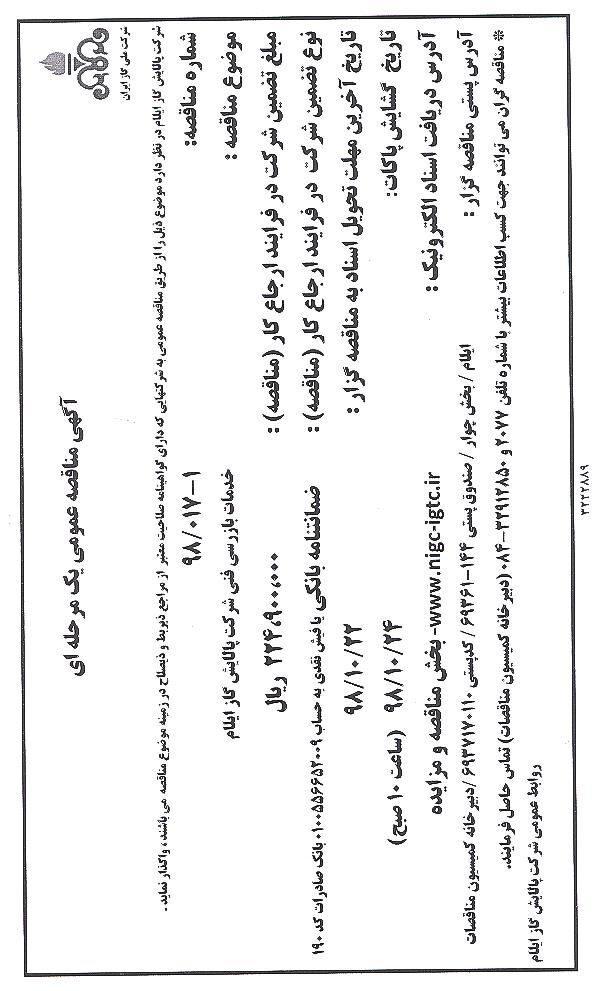 شرکت ملی گاز ایران
آگهی مناقصه عمومی یک مرحله ای
شرکت پالایش گاز ایلام در نظر دارد موضوع ذیل را از طریق مناقصه عمومی به شرکتهایی که دارای گواهینامه صلاحیت معتبر از مراجع ذیربط و ذیصلاح در زمینه موضوع مناقصه می باشند، واگذار نماید.
شماره مناقصه: ۹۸/۰۱۷-۱
موضوع مناقصه : خدمات بازرسی فنی شرکت پالایش گاز ایلام
مبلغ تضمین شرکت در فرایند ارجاع کار (مناقصه) : ۲۲۴،۹۰۰،۰۰۰ ریال
نوع تضمین شرکت در فرایند ارجاع کار (مناقصه) : ضمانتنامه بانکی یا فیش نقدی به حساب ۰۱۰۰۵۵۶۶۵۲۰۰۹ بانک صادرات کد ۱۹۰
تاریخ آخرین مهلت تحویل اسناد به مناقصه گزار : ۹۸/۱۰/۲۲
تاریخ گشایش پاکات: ۹۸/۱۰/۲۴ (ساعت ۱۰ صبح)
آدرس دریافت اسناد الکترونیک : www.nigc-igtc.ir- بخش مناقصه و مزایده
آدرس پستی مناقصه گزار : ایلام / بخش چوار / صندوق پستی ۱۴۴-۶۹۳۶۱ / کدپستی ۶۹۳۷۱۷۰۱۱۰ /دبیرخانه کمیسیون مناقصات
* مناقصه گران می توانند جهت کسب اطلاعات بیشتر با شماره تلفن ۲۰۷۷ و ۳۲۹۱۲۸۵۰-۰۸۴ (دبیرخانه کمیسیون مناقصات) تماس حاصل فرمایند.
روابط عمومی شرکت پالایش گاز ایلام
۳۲۲۲۸۸۹